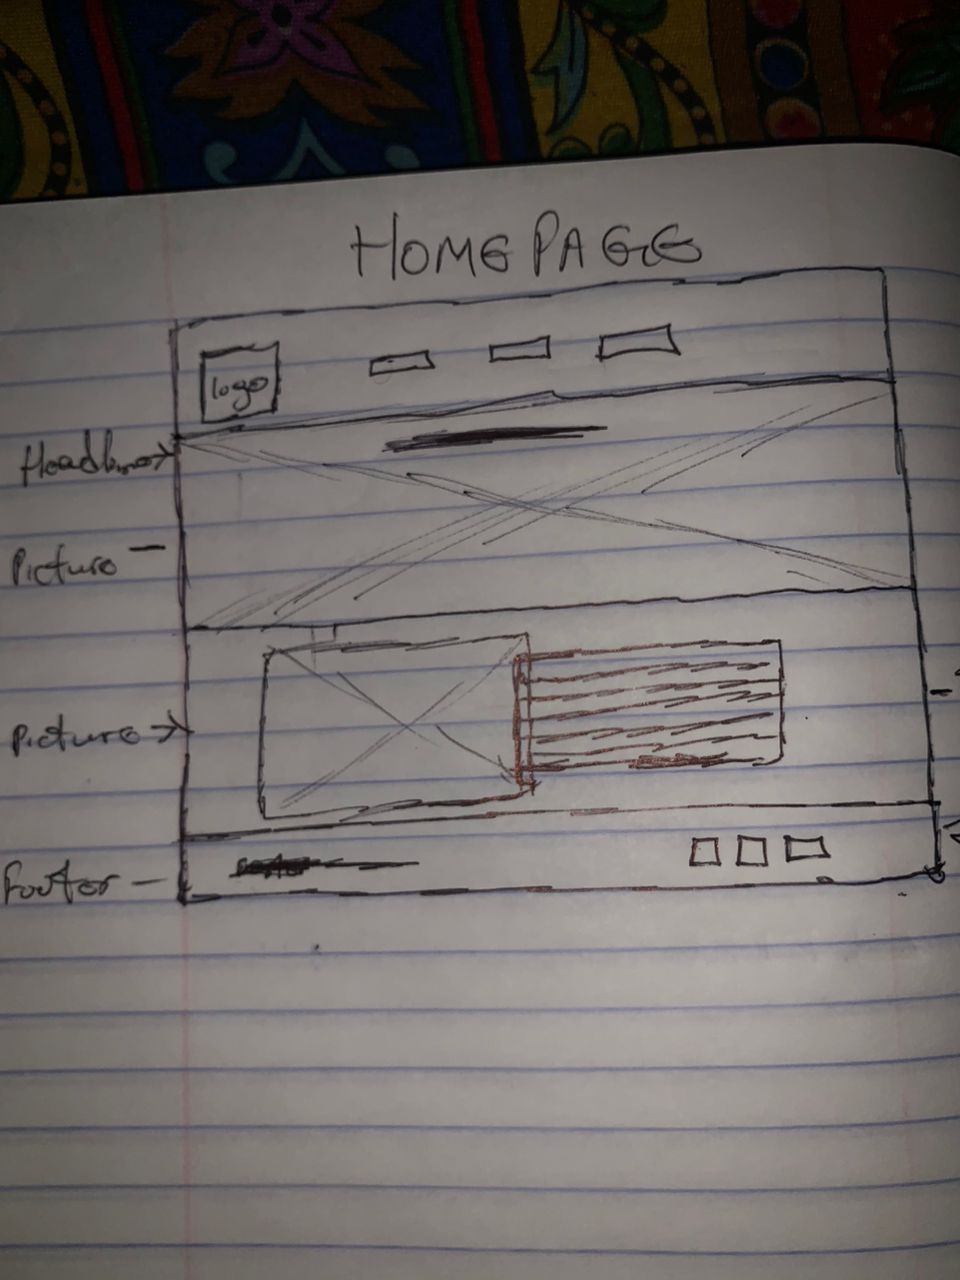 HOMEPAGE
logo
Headline
Picture
Picture
Footer